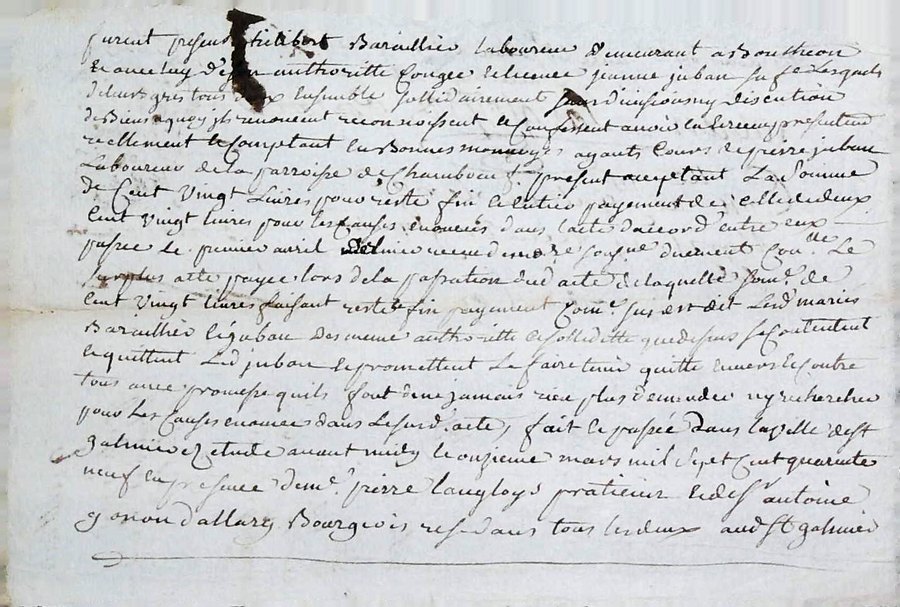 furent presents fillibert Baraillier laboureur demeurant a Bouthéon
et avec luy d'son authoritté congée et licence jeanne juban sa fe lesquels
de leurs gres tous deux ensemble sollidairement sans division ny discution
de Biens a quoy ils renoncent reconnoissent et Confessent avoir eu et receu presentem
reellement et Comptant en Bonnes monnoyes ayants Cours de pierre juban
Laboureur de la parroisse de Chambeou present acceptant La Somme
de Cent Vingt Livres pour reste fin et entier payement de celle de deux
Cent Vingt livres pour les Causes enoncées dans l'acte d'accord entre eux
passée le premier avril dernier receu de me duement Con.lle Le
surplus a été payée lors de la passation dud acte de laquelle Som.e de
Cent Vingt livres faisant reste et fin payement Com.e Sus est dit Les d mariés
Baraillier et juban de meme authoritté et solliditté que dessus se Contentent
et quittent Led juban et promettent Le faire tenir quitte envers et Contre
tous avec promesse quils font de ne jamais rien plus demander ny rechercher
pour Les Causes enoncées dans Le surd. acte, fait et passée dans la ville de St
galmier ez etude avant midy le onzieme mars mil sept Cent quarente
neuf en presence de me. pierre Langloys praticien et de Sr antoine
gonon d'allary Bourgeois residans tous les deux aud St galmier